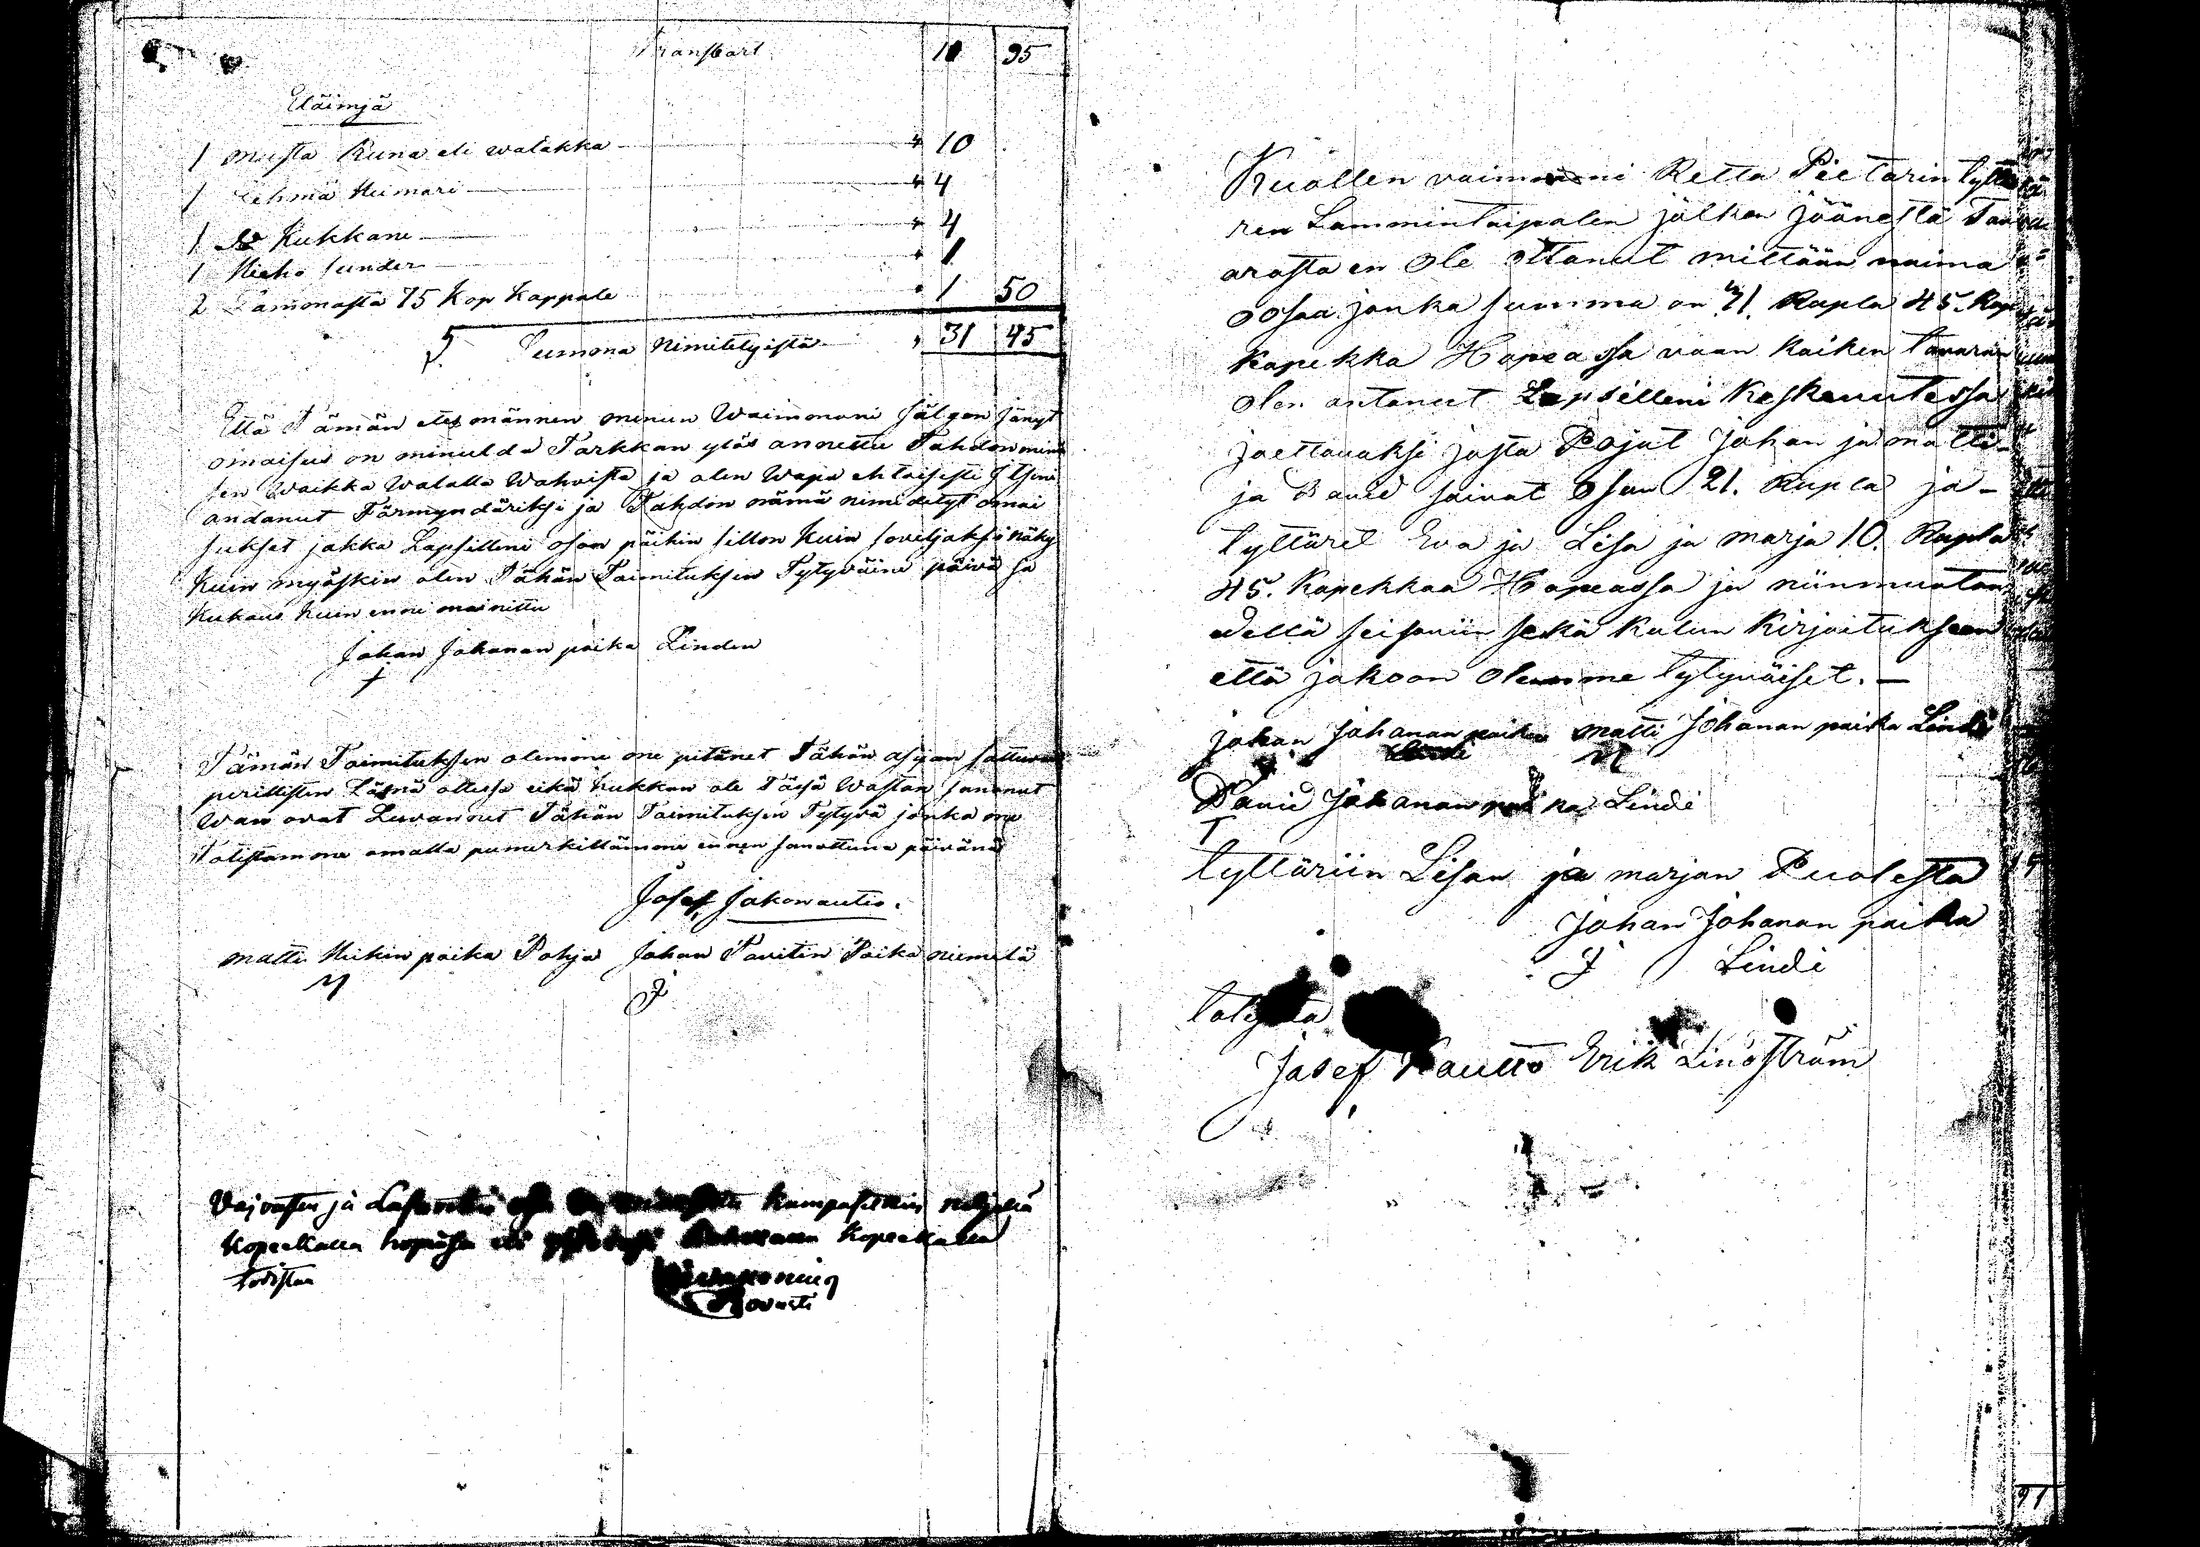 Transbart 10 95
Eläimjä
1 musta Runa eli walakka " 10
1 Lehmä Heimari " 4
1 D Kukkane " 4
1 Hieho sunder " 1
2 Lammasta 75 Kop Kappale " 1 50
S. Summa Nimitetyistä " 31 45
Että Tämän etes männen minun Waimonani jälgen jänyt
omaisus on minulda Tarkkan ylös annettu Tahdon minä
sen Waikka Walalla Wahwista ja olen Wapa ehtoisesti Itseni
andanut Förmyndäriksi ja Tahdon nämä nimidetyt omai
sukset jakka Lapsilleni oson päihin sillon Kuin soweljaksi näky
Kuin myöskin olen Tähän Toimituksen Tytyväine päivä ja
Kukaus Kuin enne mainittu
Johan Johanan poika Linden
Tämän Toimituksen olemme me pitänet Tähän asjan sattuvai
perillisten Läsnä ollessa eikä kukkan ole Täsä Wastan sanonut
Wan ovat Luvannet Tähän Toimituksen Tytyvä jonka me
Totistamme omalla pumerkillämme ennen sanottuna päivänä
Josef Jakonautio.
matti Heikin poika Pohja Johan Tavitin Poika niemelä
M J
Vaivasten ja kumpasetkin neljällä
Kopeekalla hopiassa eli Kopeekalla
todistaa
Rovasti
Kuollen vaimoni Retta Pietarin tyttä
ren Lammintaipalen jälken jäänestä Tava
arasta en Ole ottanut mittään naima
oosaa jonka summa on 71. Rupla 45. Kop
Kopekka Hopeassa vaan Kaiken tavaran
olen antanut Lapsilleni Keskenutessa
jaettavaksi josta Pojat Johan ja matti
ja David saivat Osan 21. Rupla ja -
tyttäret Eva ja Lisa ja marja 10. Rupla
45. Kopekkaa Hopeassa ja niinmuoton
edellä seisoviin sekä Kalun Kirjoitukseen
että jakoon olemme tytyväiset. -
Johan Johanan poika matti Johanan poika Lindi
Lindi M
David Johanan poika Lindi
T
tyttäriin Lisan ja marjan Puolesta
Johan Johanan poika
J Lindi
Josef Kautto Erik Lindström
91